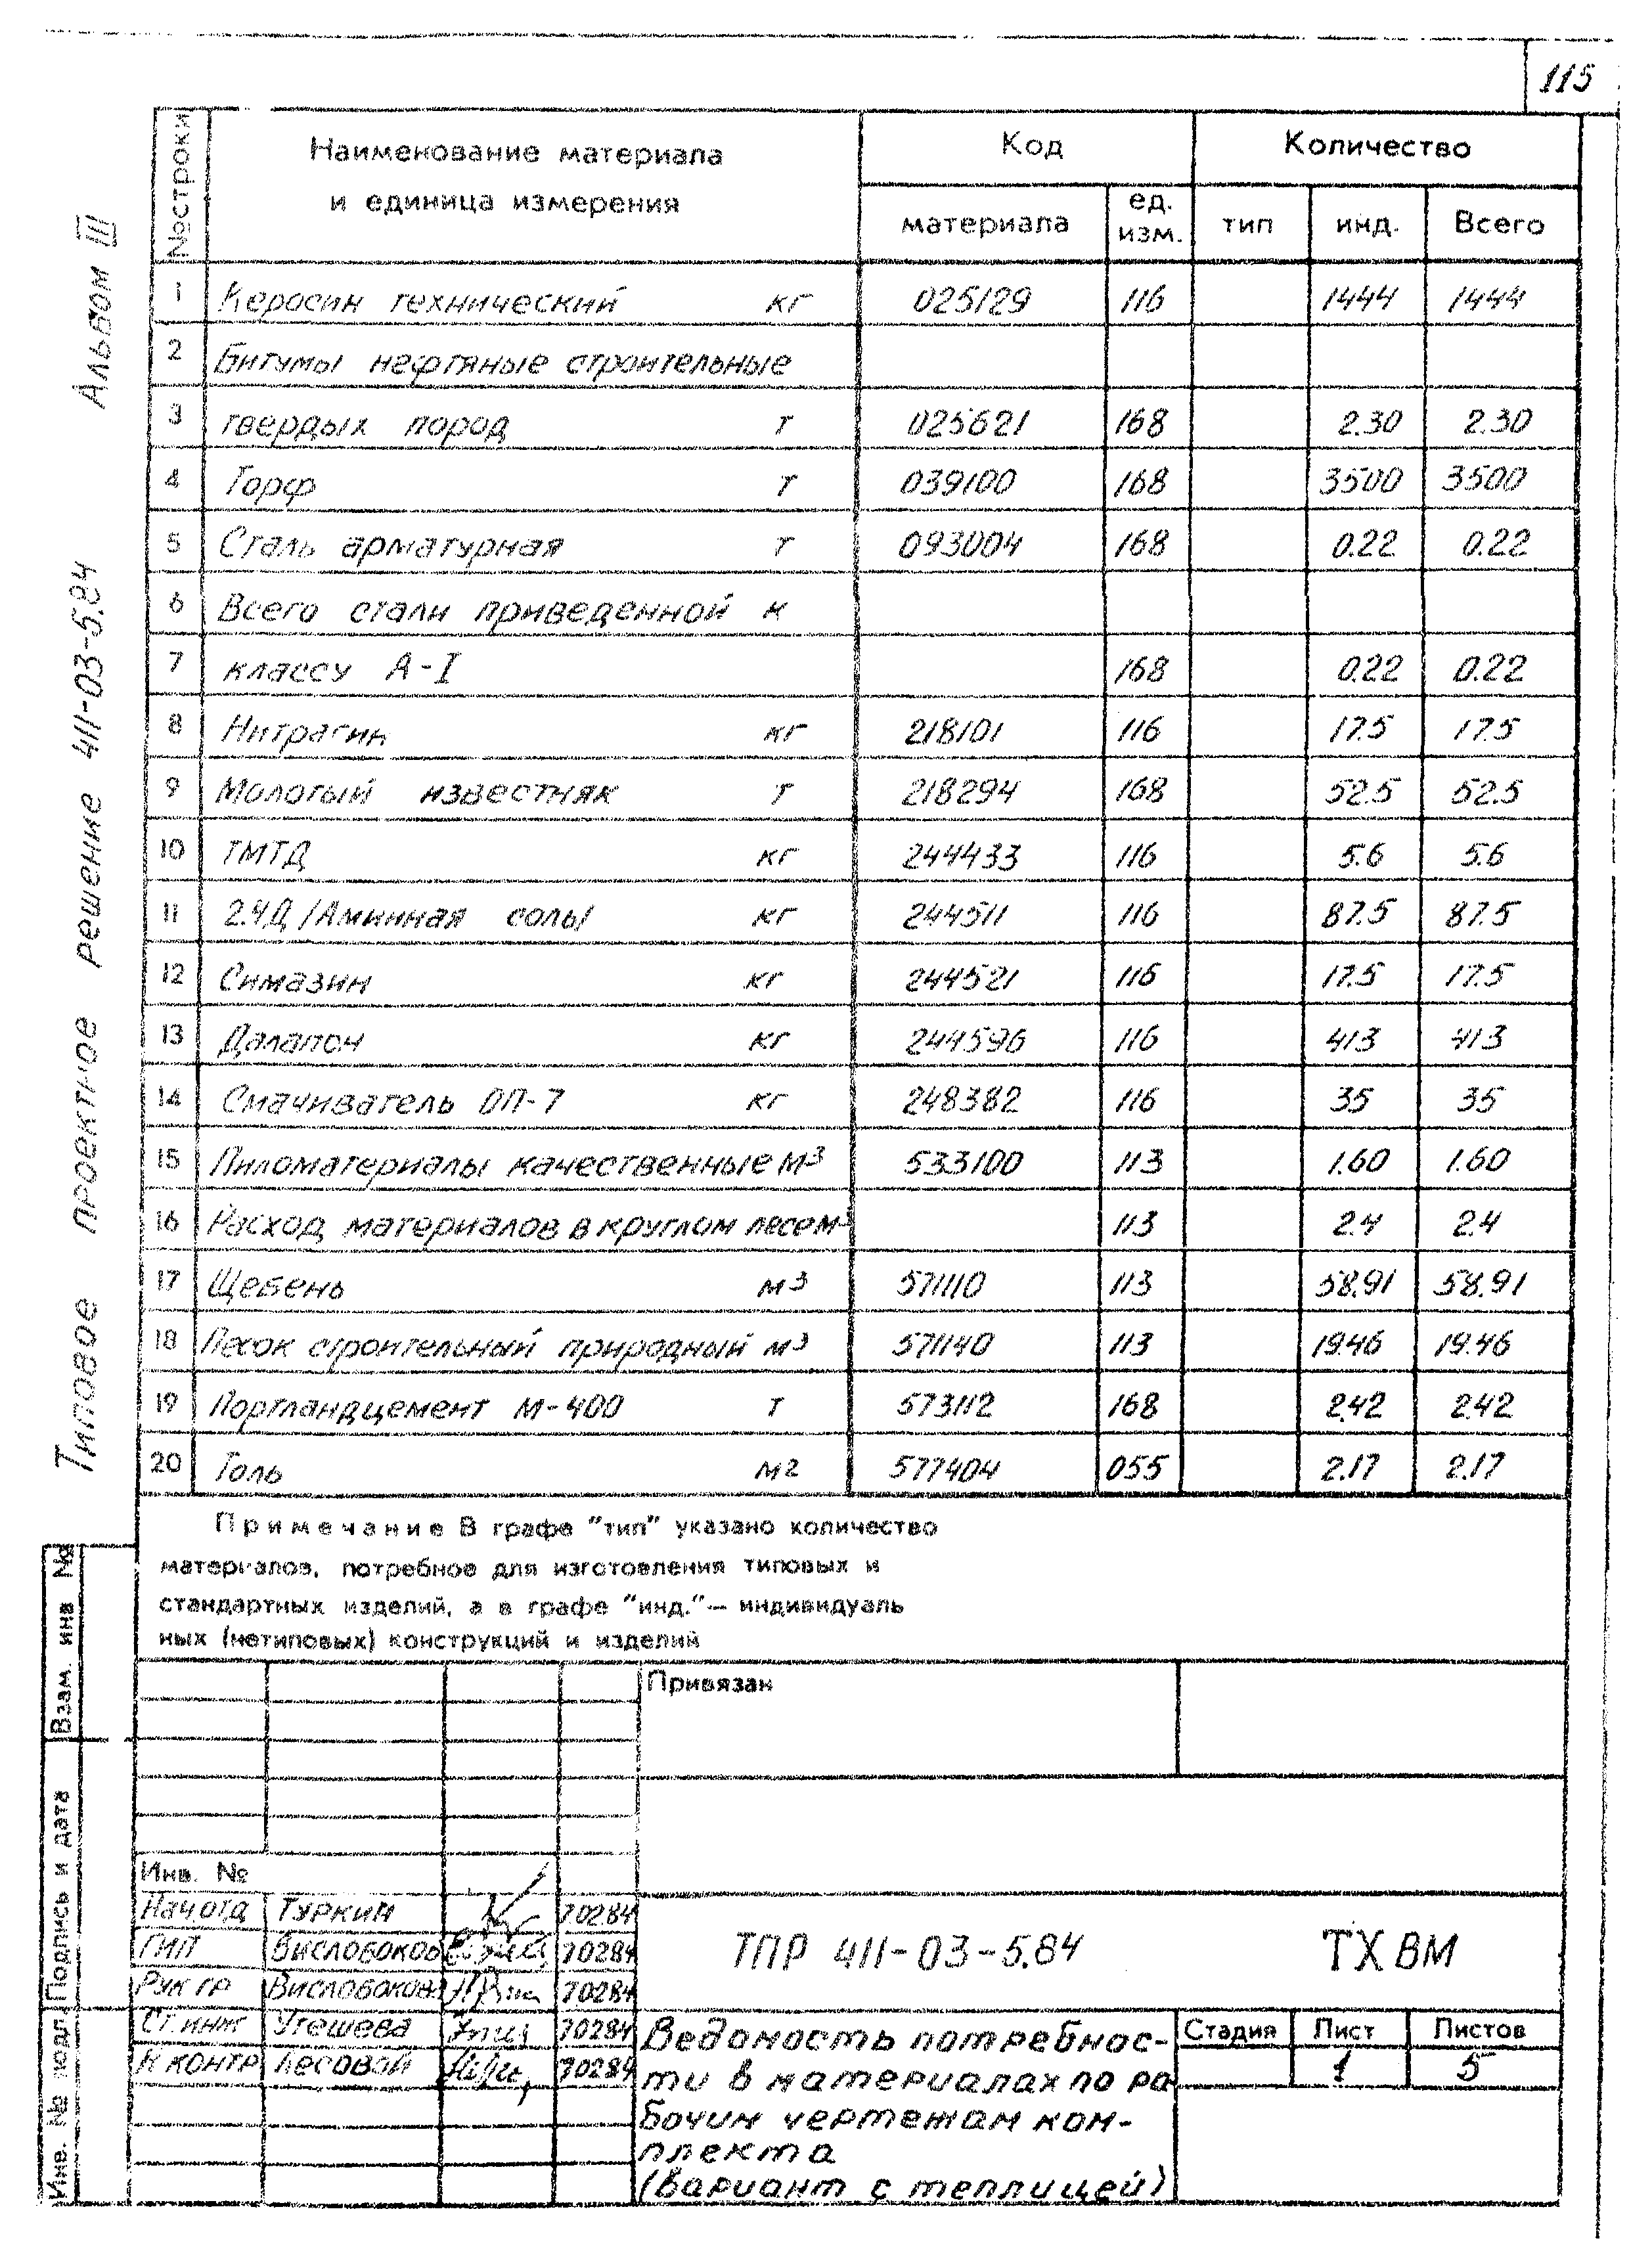 115
Типовое проектное решение 411-03-5.84 Альбом III
№ строки Наименование материала и единица измерения Код Количество
материала ед. изм. тип инд. Всего
1 Керосин технический кг 025129 116 1444 1444
2 Битумы нефтяные строительные
3 твердых пород т 025621 168 2.30 2.30
4 Торф т 039100 168 3500 3500
5 Сталь арматурная т 093004 168 0.22 0.22
6 Всего стали приведенной к
7 классу А-I 168 0.22 0.22
8 Нитрагин кг 218101 116 17.5 17.5
9 Молотый известняк т 218294 168 52.5 52.5
10 ТМТД кг 244433 116 5.6 5.6
11 2.4Д /Аминная соль/ кг 244511 116 87.5 87.5
12 Симазин кг 244521 116 17.5 17.5
13 Далапон кг 244596 116 413 413
14 Смачиватель ОП-7 кг 248382 116 35 35
15 Пиломатериалы качественные м3 533100 113 1.60 1.60
16 Расход материалов в круглом лесе м3 113 2.4 2.4
17 Щебень м3 571110 113 58.91 58.91
18 Песок строительный природный м3 571140 113 19.46 19.46
19 Портландцемент М-400 т 573112 168 2.42 2.42
20 Толь м2 577404 055 2.17 2.17
Примечание В графе "тип" указано количество
материалов, потребное для изготовления типовых и
стандартных изделий, а в графе "инд."— индивидуаль
ных (нетиповых) конструкций и изделий
Привязан
Инв. №
Нач.отд Туркин 70284
ГИП Вислобоков 70284
Рук гр Вислобокова 70284
Ст.инж Утешева 70284
Н контр Лесовой 70284
ТПР 411-03-5.84 ТХ ВМ
Ведомость потребнос-
ти в материалах по ра
бочим чертежам ком-
плекта
(вариант с теплицей)
Стадия Лист Листов
1 5
Взам. инв №
Подпись и дата
Инв. № подл.